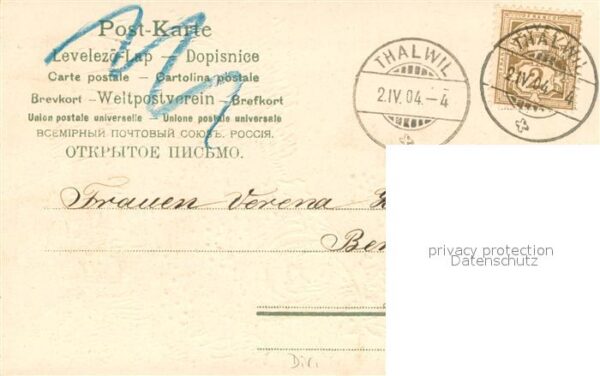 Post-Karte
Levelező-Lap — Dopisnice
Carte postale — Cartolina postale
Brevkort — Weltpostverein — Brefkort
Union postale universelle — Unione postale universale
ВСЕМІРНЫЙ ПОЧТОВЫЙ СОЮЗЪ. РОССІЯ.
ОТКРЫТОЕ ПИСЬМО.
THALWIL
2.IV.04.–4
THALWIL
2.IV.04.–4
FRANCO
2
Frauen Verena
Ber
privacy protection
Datenschutz
Div.